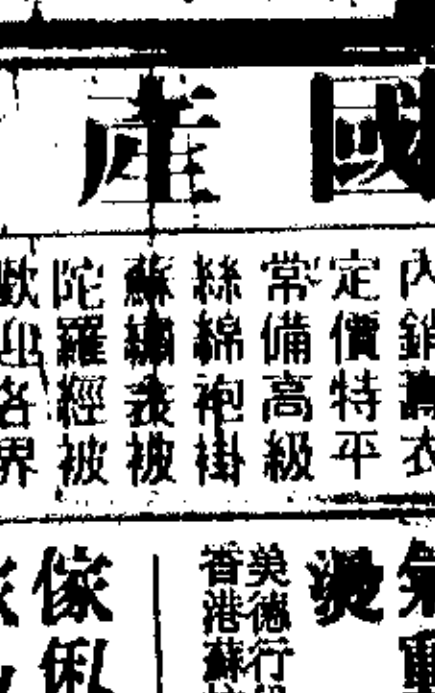 國產
內銷壽衣
定價特平
常備高級
絲綿袍褂
蘇繡表被
陀羅經被
歡迎各界
美德行
香港蘇
傢俬